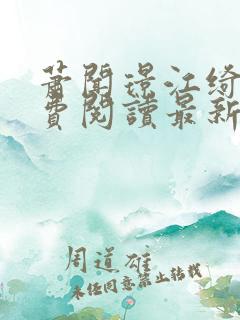 萧闻璟江绮
费阅读最新
周道雄
未经同意禁止转载